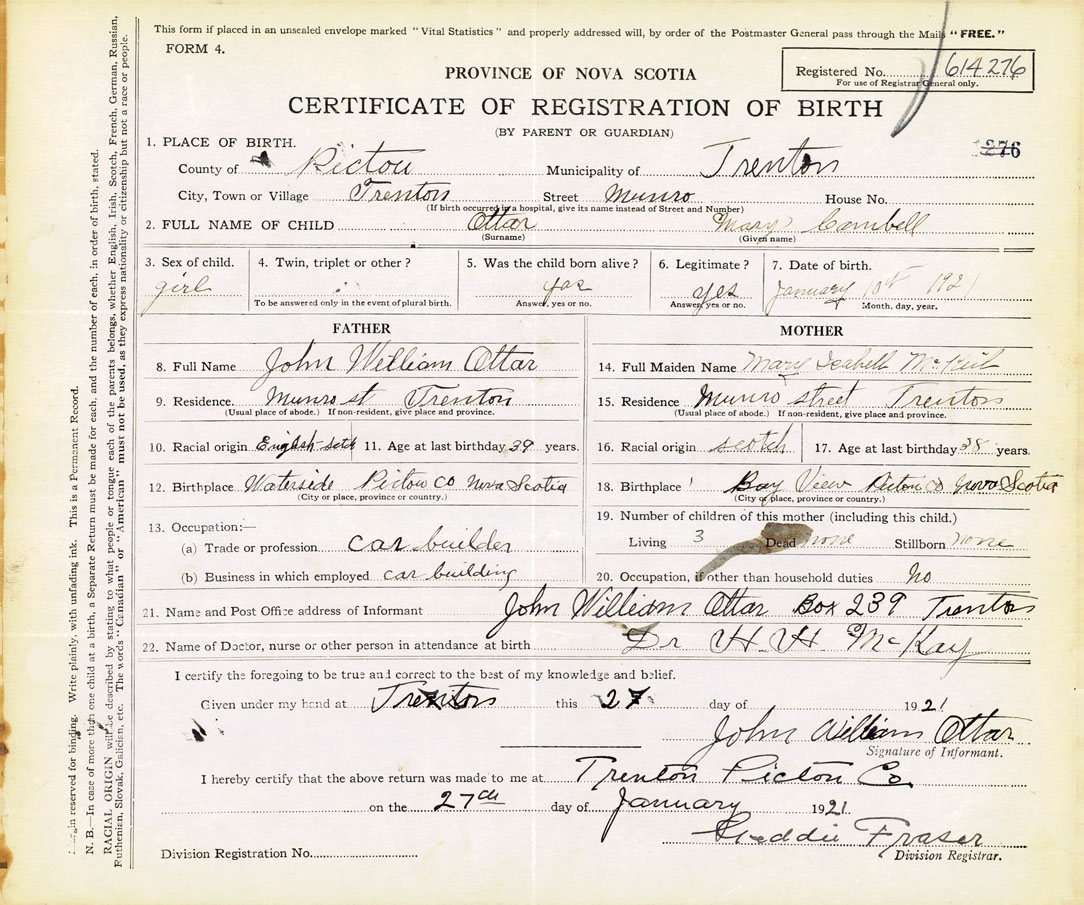 This form if placed in an unsealed envelope marked "Vital Statistics" and properly addressed will, by order of the Postmaster General pass through the Mails "FREE."
FORM 4.
Registered No. 614276
For use of Registrar General only.
PROVINCE OF NOVA SCOTIA
CERTIFICATE OF REGISTRATION OF BIRTH
(BY PARENT OR GUARDIAN)
276
1. PLACE OF BIRTH.
County of Pictou Municipality of Trenton
City, Town or Village Trenton Street Munro House No.
(If birth occurred in a hospital, give its name instead of Street and Number)
2. FULL NAME OF CHILD Ottar Mary Cambell
(Surname) (Given name)
3. Sex of child. 4. Twin, triplet or other? 5. Was the child born alive? 6. Legitimate? 7. Date of birth.
girl yas yes January 10th 1921
To be answered only in the event of plural birth. Answer, yes or no. Answer, yes or no. Month, day, year.
FATHER
8. Full Name John William Ottar
9. Residence. Munro st Trenton
(Usual place of abode.) If non-resident, give place and province.
10. Racial origin English-scth 11. Age at last birthday 39 years.
12. Birthplace Waterside Pictou Co Nova Scotia
(City or place, province or country.)
13. Occupation:—
(a) Trade or profession car builder
(b) Business in which employed car building
MOTHER
14. Full Maiden Name Mary Isabell
15. Residence Munro street Trenton
(Usual place of abode.) If non-resident, give place and province.
16. Racial origin scotch 17. Age at last birthday 38 years.
18. Birthplace Bay View Pictou Co Nova Scotia
(City or place, province or country.)
19. Number of children of this mother (including this child.)
Living 3 Dead none Stillborn none
20. Occupation, if other than household duties no
21. Name and Post Office address of Informant John William Ottar Box 239 Trenton
22. Name of Doctor, nurse or other person in attendance at birth Dr H. H McKay
I certify the foregoing to be true and correct to the best of my knowledge and belief.
Given under my hand at Trenton this 27 day of 1921
John William Ottar
Signature of Informant.
I hereby certify that the above return was made to me at Trenton Pictou Co
on the 27th day of January 1921.
Fraser
Division Registrar.
Division Registration No.
Margin reserved for binding. Write plainly, with unfading ink. This is a Permanent Record.
N. B.—In case of more than one child at a birth, a Separate Return must be made for each, and the number of each, in order of birth, stated.
RACIAL ORIGIN will be described by stating to what people or tongue each of the parents belongs, whether English, Irish, Scotch, French, German, Russian,
Ruthenian, Slovak, Galician, etc. The words "Canadian" or "American" must not be used, as they express nationality or citizenship but not a race or people.